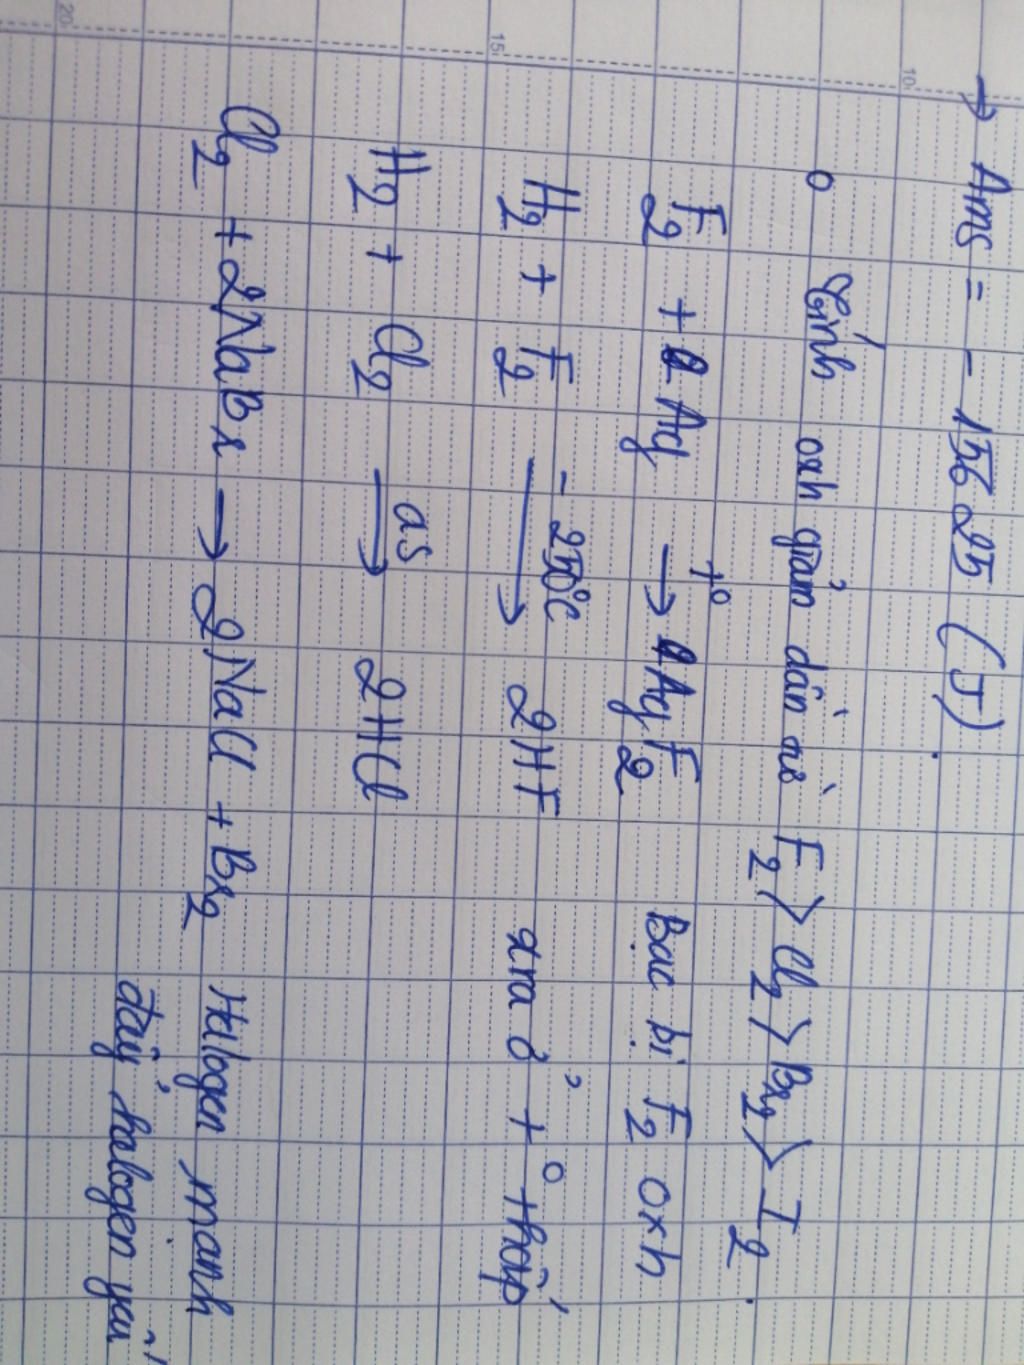 → Ams = - 156 25 (J).
o Tính oxh giảm dần từ F2 > Cl2 > Br2 > I2.
F2 + Ag t° → AgF2 Bạc bị F2 oxh
H2 + F2 - 250°C → 2HF xra ở t° thấp
H2 + Cl2 as → 2HCl
Cl2 + 2NaBr → 2NaCl + Br2 Halogen mạnh
đẩy halogen yếu
20
15
10